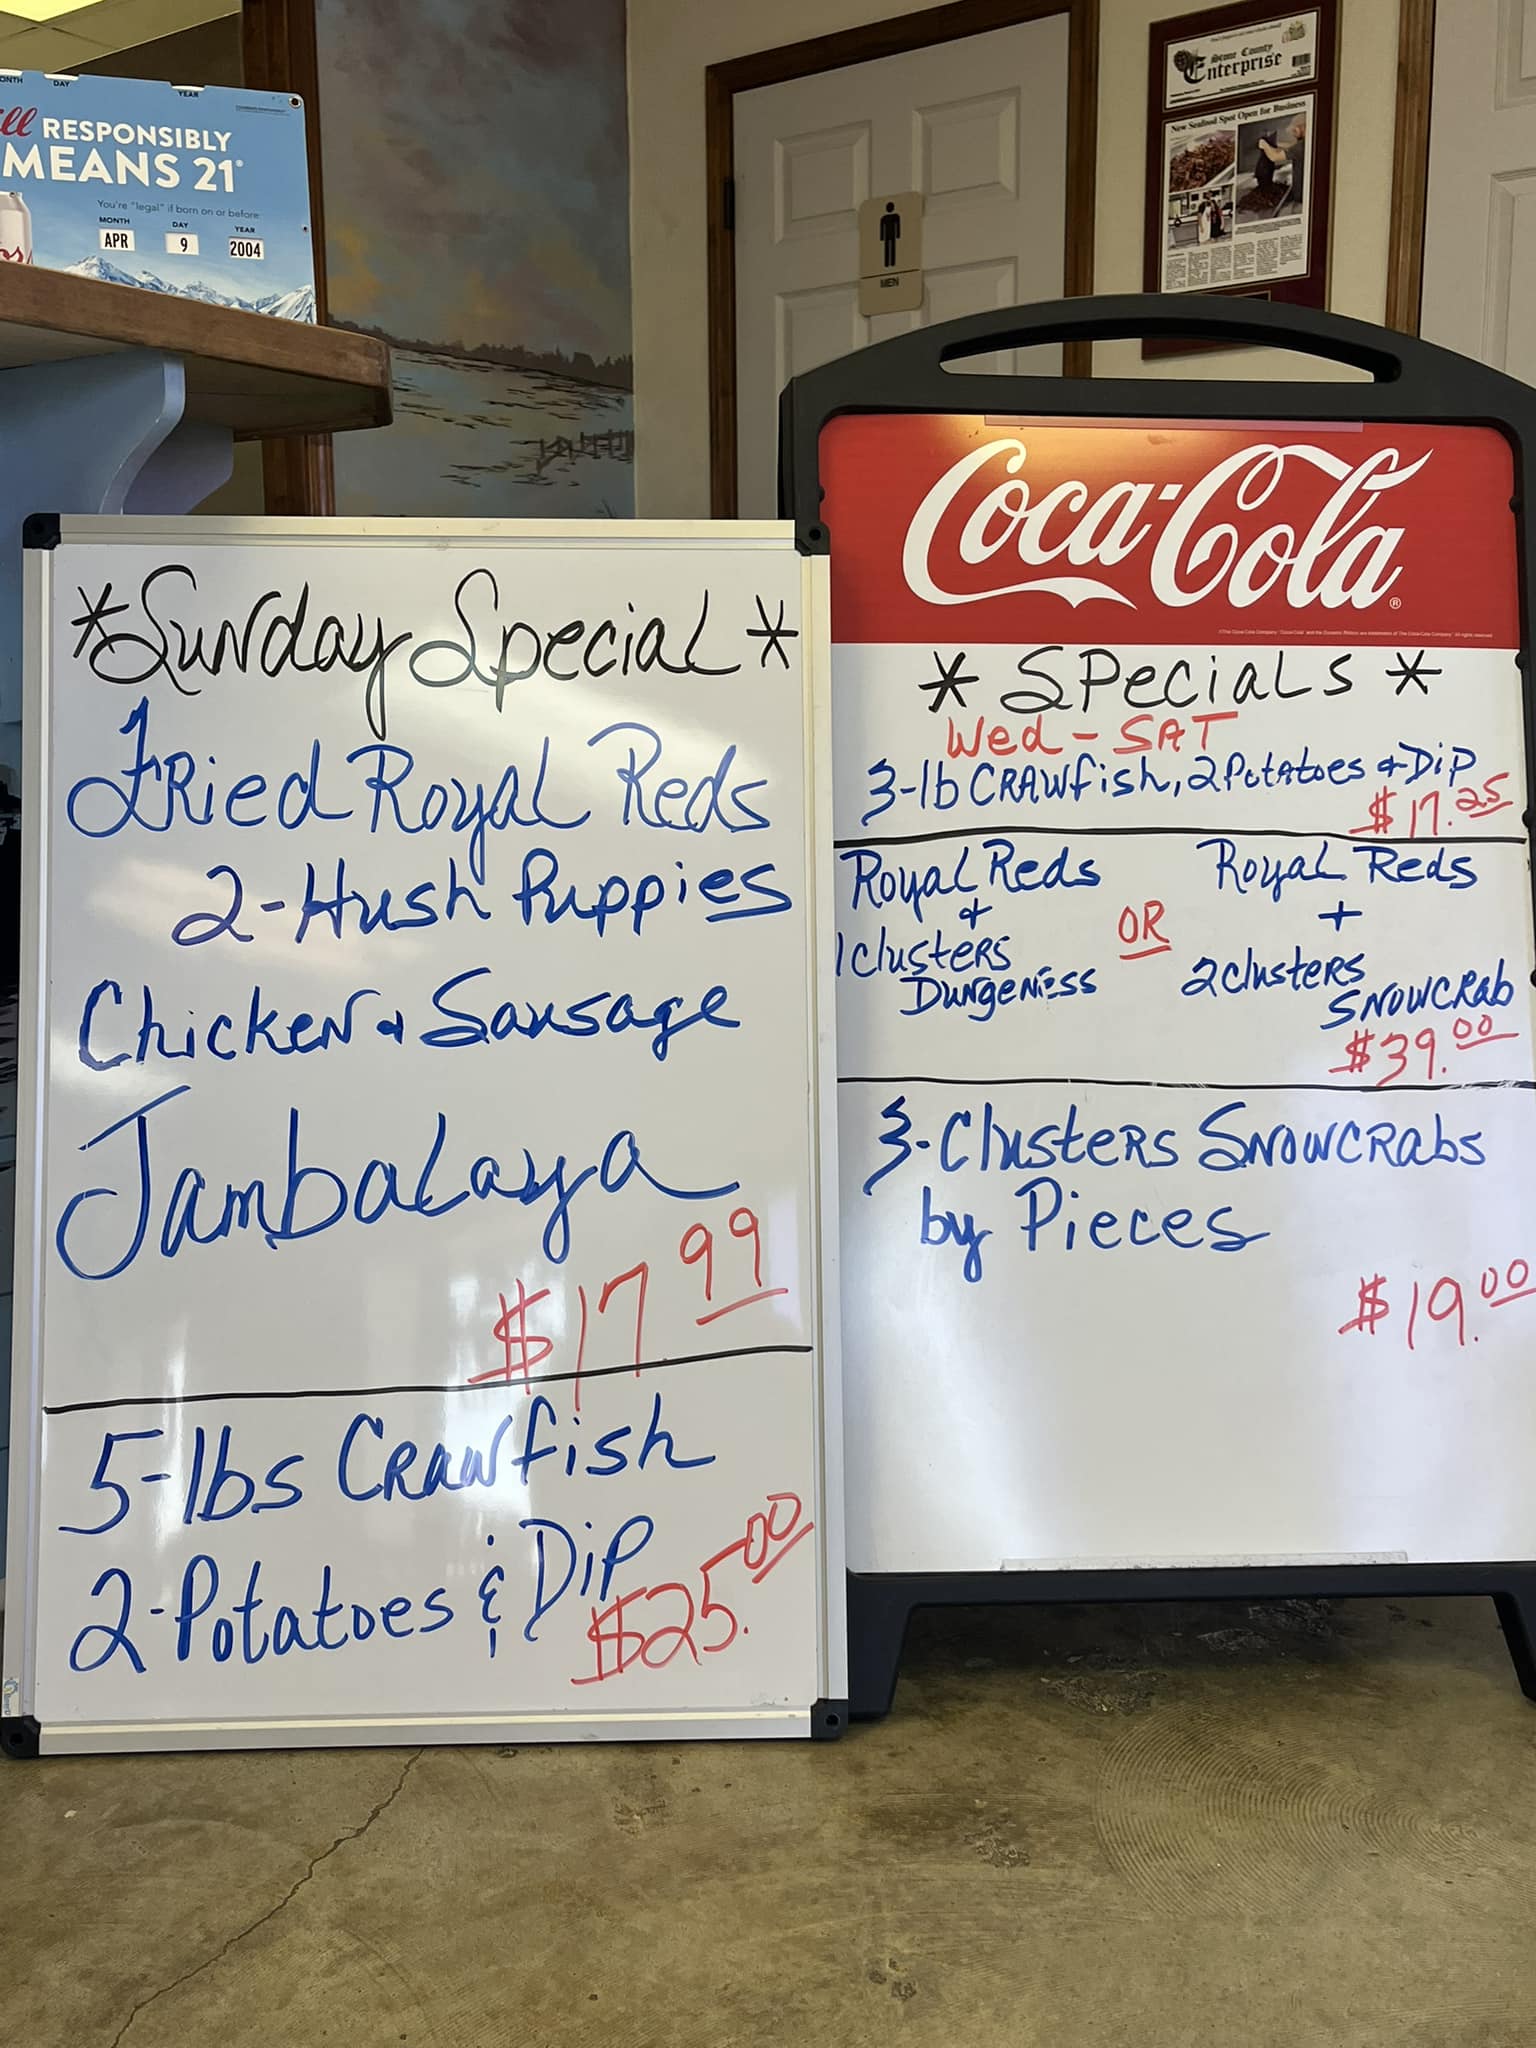 MONTH DAY YEAR
RESPONSIBLY
MEANS 21
You're "legal" if born on or before:
MONTH DAY YEAR
APR 9 2004
MEN
Stone County
Enterprise
New Seafood Spot Open for Business
*Sunday Special*
Fried Royal Reds
2-Hush Puppies
Chicken & Sausage
Jambalaya
$17.99
5-lbs Crawfish
2-Potatoes & Dip
$25.00
Coca-Cola®
* Specials *
Wed-SAT
3-lb CRAWfish, 2 Potatoes & Dip
$17.25
Royal Reds
+
1 Clusters
Dungeness
OR
Royal Reds
+
2 Clusters
SNOWCRAb
$39.00
3-Clusters SNOWCRAbs
by Pieces
$19.00